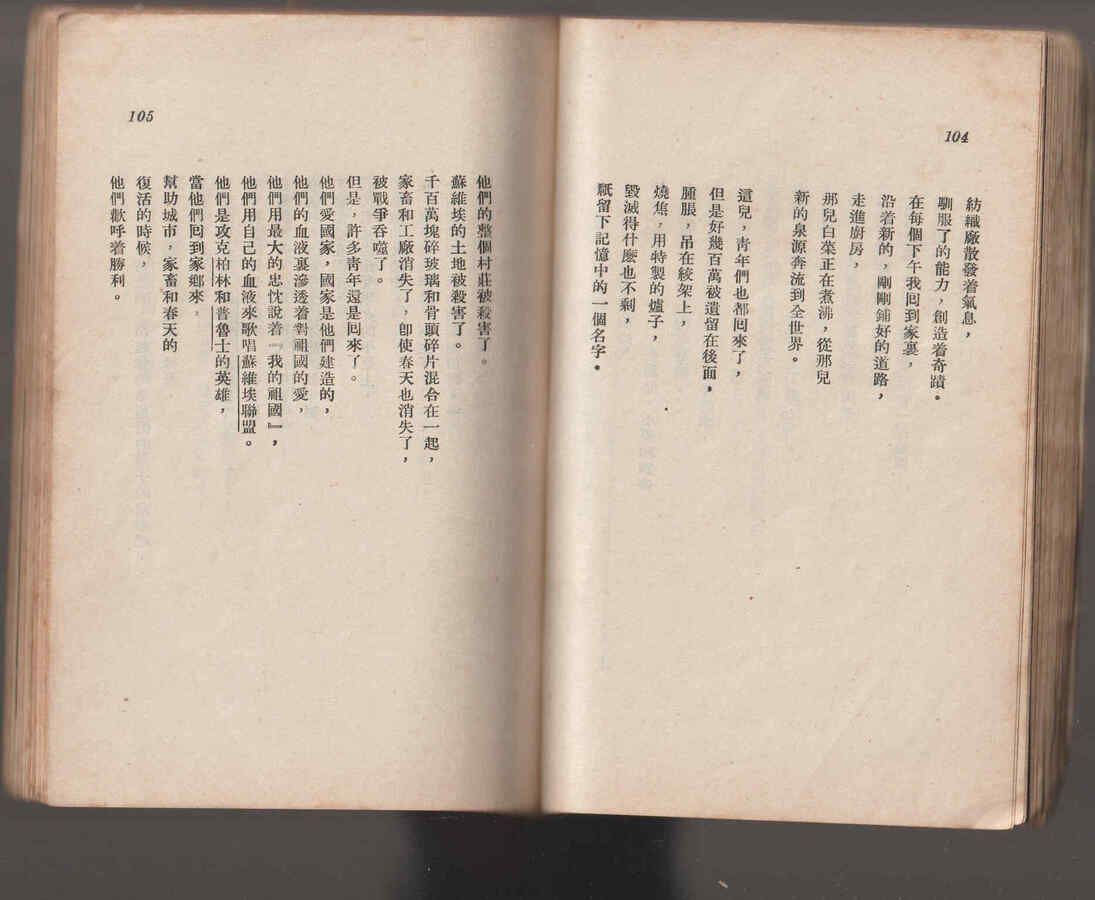 104
紡織廠散發着氣息，
馴服了的能力，創造着奇蹟。
在每個下午我囘到家裏，
沿着新的，剛剛鋪好的道路，
走進廚房，
那兒白菜正在煮沸，從那兒
新的泉源奔流到全世界。
這兒，青年們也都囘來了，
但是好幾百萬被遺留在後面，
腫脹，吊在絞架上，
燒焦，用特製的爐子，
毀滅得什麼也不剩，
祇留下記憶中的一個名字。
105
他們的整個村莊被殺害了。
蘇維埃的土地被殺害了。
千百萬塊碎玻璃和骨頭碎片混合在一起，
家畜和工廠消失了，卽使春天也消失了，
被戰爭吞噬了。
但是，許多青年還是囘來了。
他們愛國家，國家是他們建造的，
他們的血液裏滲透着對祖國的愛，
他們用最大的忠忱說着『我的祖國』，
他們用自己的血液來歌唱蘇維埃聯盟。
他們是攻克柏林和普魯士的英雄，
當他們囘到家鄉來，
幫助城市，家畜和春天的
復活的時候，
他們歡呼着勝利。